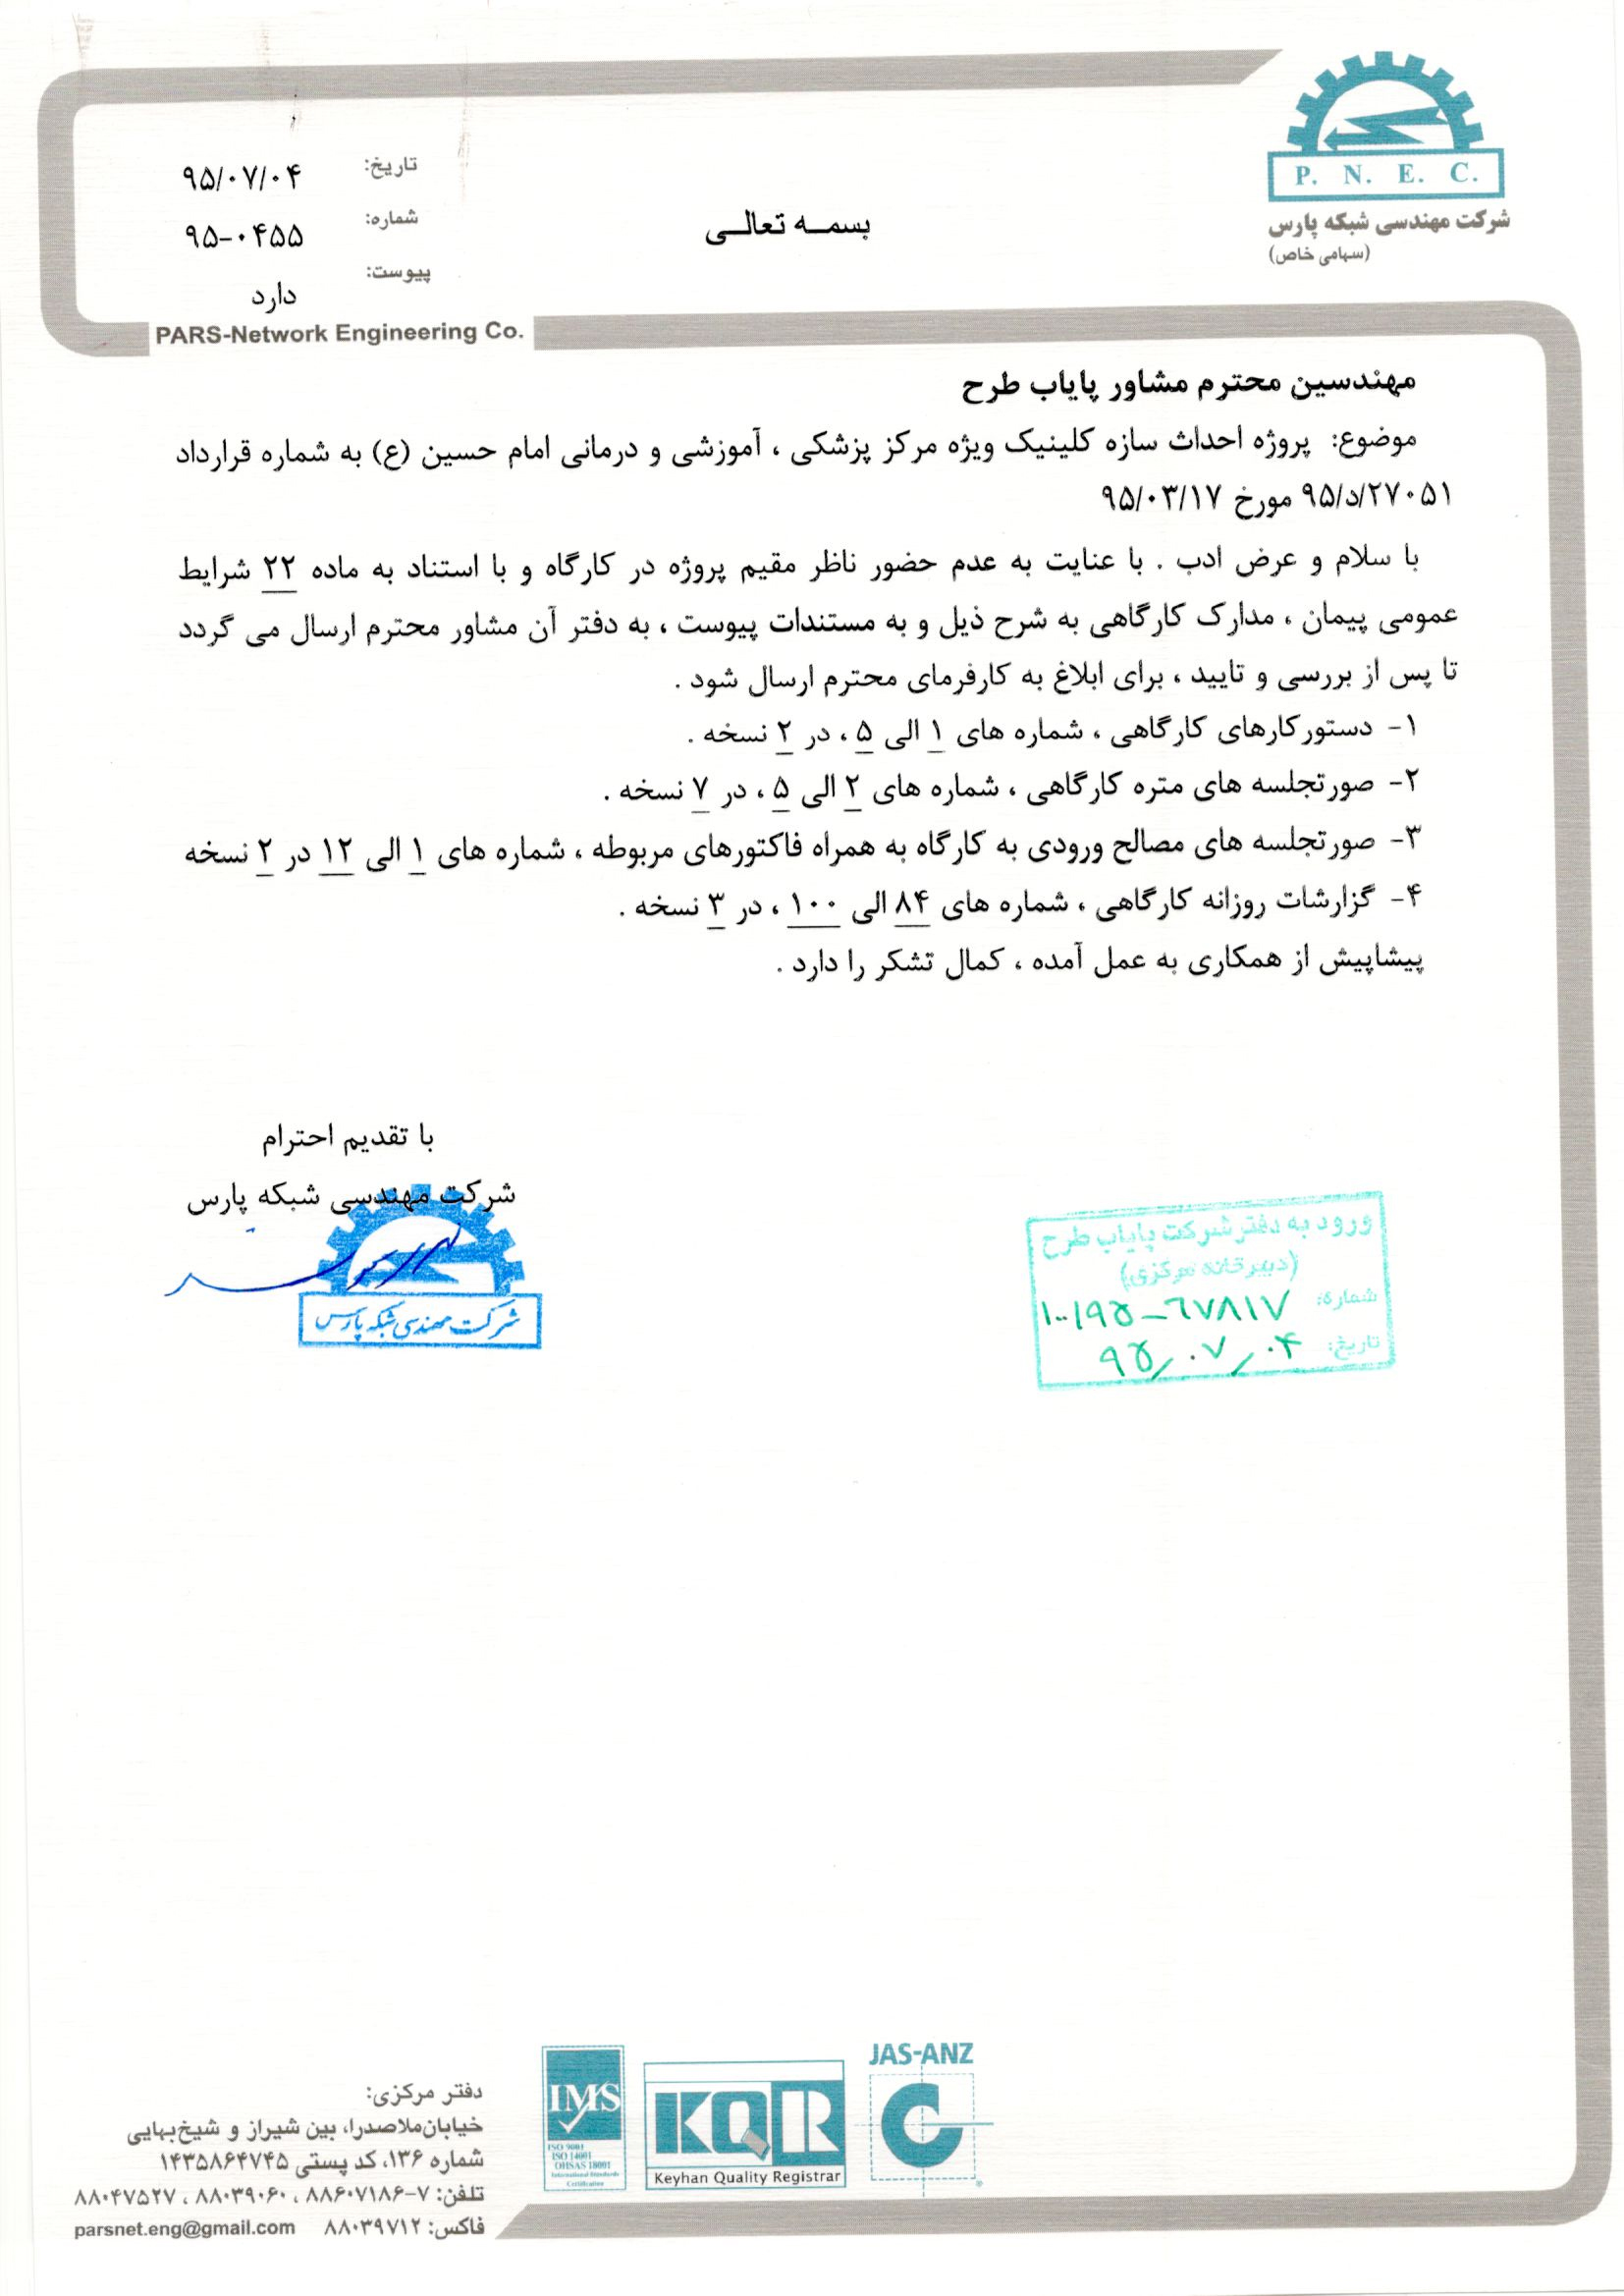 P. N. E. C.
شرکت مهندسی شبکه پارس
(سهامی خاص)
بسمه تعالی
تاریخ: ۹۵/۰۷/۰۴
شماره: ۹۵-۰۴۵۵
پیوست: دارد
PARS-Network Engineering Co.
مهندسین محترم مشاور پایاب طرح
موضوع: پروژه احداث سازه کلینیک ویژه مرکز پزشکی ، آموزشی و درمانی امام حسین (ع) به شماره قرارداد
۹۵/د/۲۷۰۵۱ مورخ ۹۵/۰۳/۱۷
با سلام و عرض ادب . با عنایت به عدم حضور ناظر مقیم پروژه در کارگاه و با استناد به ماده ۲۲ شرایط
عمومی پیمان ، مدارک کارگاهی به شرح ذیل و به مستندات پیوست ، به دفتر آن مشاور محترم ارسال می گردد
تا پس از بررسی و تایید ، برای ابلاغ به کارفرمای محترم ارسال شود .
۱- دستورکارهای کارگاهی ، شماره های ۱ الی ۵ ، در ۲ نسخه .
۲- صورتجلسه های متره کارگاهی ، شماره های ۲ الی ۵ ، در ۷ نسخه .
۳- صورتجلسه های مصالح ورودی به کارگاه به همراه فاکتورهای مربوطه ، شماره های ۱ الی ۱۲ در ۲ نسخه
۴- گزارشات روزانه کارگاهی ، شماره های ۸۴ الی ۱۰۰ ، در ۳ نسخه .
پیشاپیش از همکاری به عمل آمده ، کمال تشکر را دارد .
با تقدیم احترام
شرکت مهندسی شبکه پارس
شرکت مهندسی شبکه پارس
ورود به دفتر شرکت پایاب طرح
(دبیرخانه مرکزی)
شماره: ۱۰۰/۹۵-۶۷۸۱۷
تاریخ: ۹۵/۰۷/۰۴
JAS-ANZ
IMS
ISO 9001
ISO 14001
OHSAS 18001
International Standards
Certification
KQR
Keyhan Quality Registrar
دفتر مرکزی:
خیابان ملاصدرا، بین شیراز و شیخ بهایی
شماره ۱۳۶، کد پستی ۱۴۳۵۸۶۴۷۴۵
تلفن: ۷-۸۸۶۰۷۱۸۶ ، ۸۸۰۳۹۰۶۰ ، ۸۸۰۴۷۵۲۷
فاکس: ۸۸۰۳۹۷۱۲ parsnet.eng@gmail.com